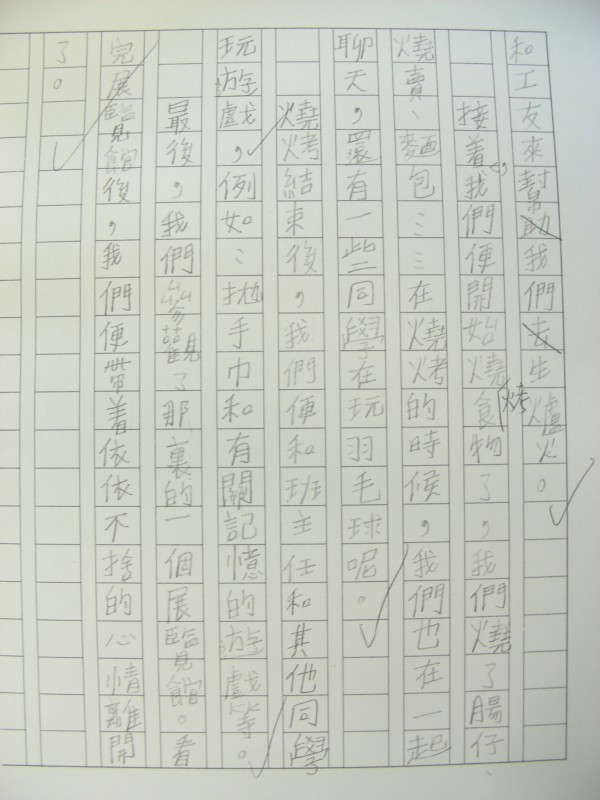 和工友來幫助我們去生爐火。
接着,我們便開始燒烤食物了,我們燒了腸仔、
燒賣、麵包……在燒烤的時候,我們也在一起
聊天,還有一些同學在玩羽毛球呢。
燒烤結束後,我們便和班主任和其他同學
玩遊戲,例如:拋手巾和有關記憶的遊戲等。
最後,我們參觀了那裏的一個展覽館。看
完展覽館後,我們便帶着依依不捨的心情離開
了。